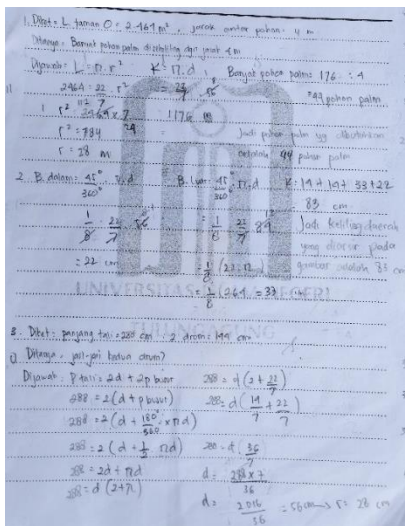 1. Diket = L taman O = 2.464 m², jarak antar pohon = 4 m
Ditanya = Banyak pohon palm disekeliling dgn jarak 4 m
Dijawab = L = π.r² K = π.d, Banyak pohon palm = 176 : 4
2464 = 22/7 . r² = 22/7 . 56 = 44 pohon palm
r² = 2464 x 7 = 176 m
r² = 784 Jadi pohon palm yg dibutuhkan
r = 28 m adalah 44 pohon palm
2. B. dalam = 45°/360° π.d B. luar = 45/360 π.d K = 14 + 14 + 33 + 22
83 cm
1/8 . 22/7 . 56 = 1/8 22/7 84 Jadi keliling daerah
yang diarsir pada
= 22 cm = 1/8 (22 . 12) gambar adalah 83 cm
UNIVERSITAS NEGERI
= 1/8 (264 = 33 cm)
TULUNGAGUNG
3. Diket = panjang tali = 288 cm, 2 drom = 144 cm
Ditanya = jari-jari kedua drum?
Dijawab = P tali = 2d + 2p busur 288 = d (2 + 22/7)
288 = 2 (d + p busur) 288 = d (14/7 + 22/7)
288 = 2 (d + 180°/360 x πd)
288 = 2 (d + 1/2 πd) 288 = d (36/7)
288 = 2d + πd d = 288 x 7/36
288 = d (2 + π)
d = 2016/36 = 56 cm → r = 28 cm